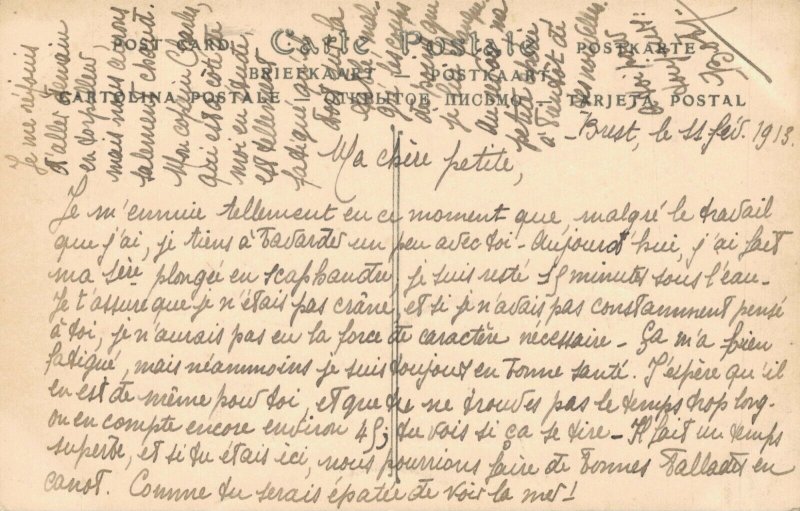 POST CARD Carte Postale POSTKARTE
BRIEFKAART — POSTKAART
CARTOLINA POSTALE — ОТКРЫТОЕ ПИСЬМО — TARJETA POSTAL
Brest, le 11 fév. 1913.
Ma chère petite,
Je m'ennuie tellement en ce moment que malgré le travail
que j'ai, je tiens à bavarder un peu avec toi - Aujourd'hui, j'ai fait
ma 1ère plongée en scaphandre, je suis resté 15 minutes sous l'eau -
Je t'assure que je n'étais pas crâne, et si je n'avais pas constamment pensé
à toi, je n'aurais pas eu la force de caractère nécessaire - Ça m'a bien
fatigué, mais néanmoins je suis toujours en bonne santé. J'espère qu'il
en est de même pour toi, et que tu ne trouves pas le temps trop long -
on en compte encore environ 45; tu vois si ça se tire - Il fait un temps
superbe, et si tu étais ici, nous pourrions faire de bonnes ballades en
canot. Comme tu serais épatée de voir la mer!
Je me réjouis
d'aller demain
en torpilleur,
mais nous serons
salement
Mon copain Charles,
qui est à côté de
moi en étude
est tellement
fatigué qu'il
dort sur la